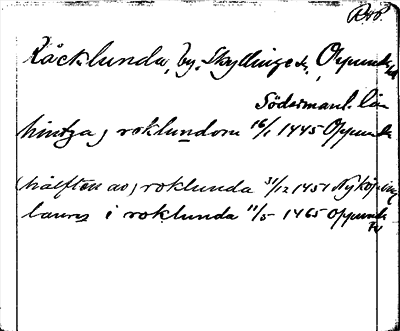 Räcklunda, by, Skyllinge s., Oppunda hd
Södermanl. län
hintza j roklundom 16/1 1445 Oppunda
(hälften av) roklunda 31/12 1451 Nyköping
laurens i roklunda 11/5 1465 Oppunda